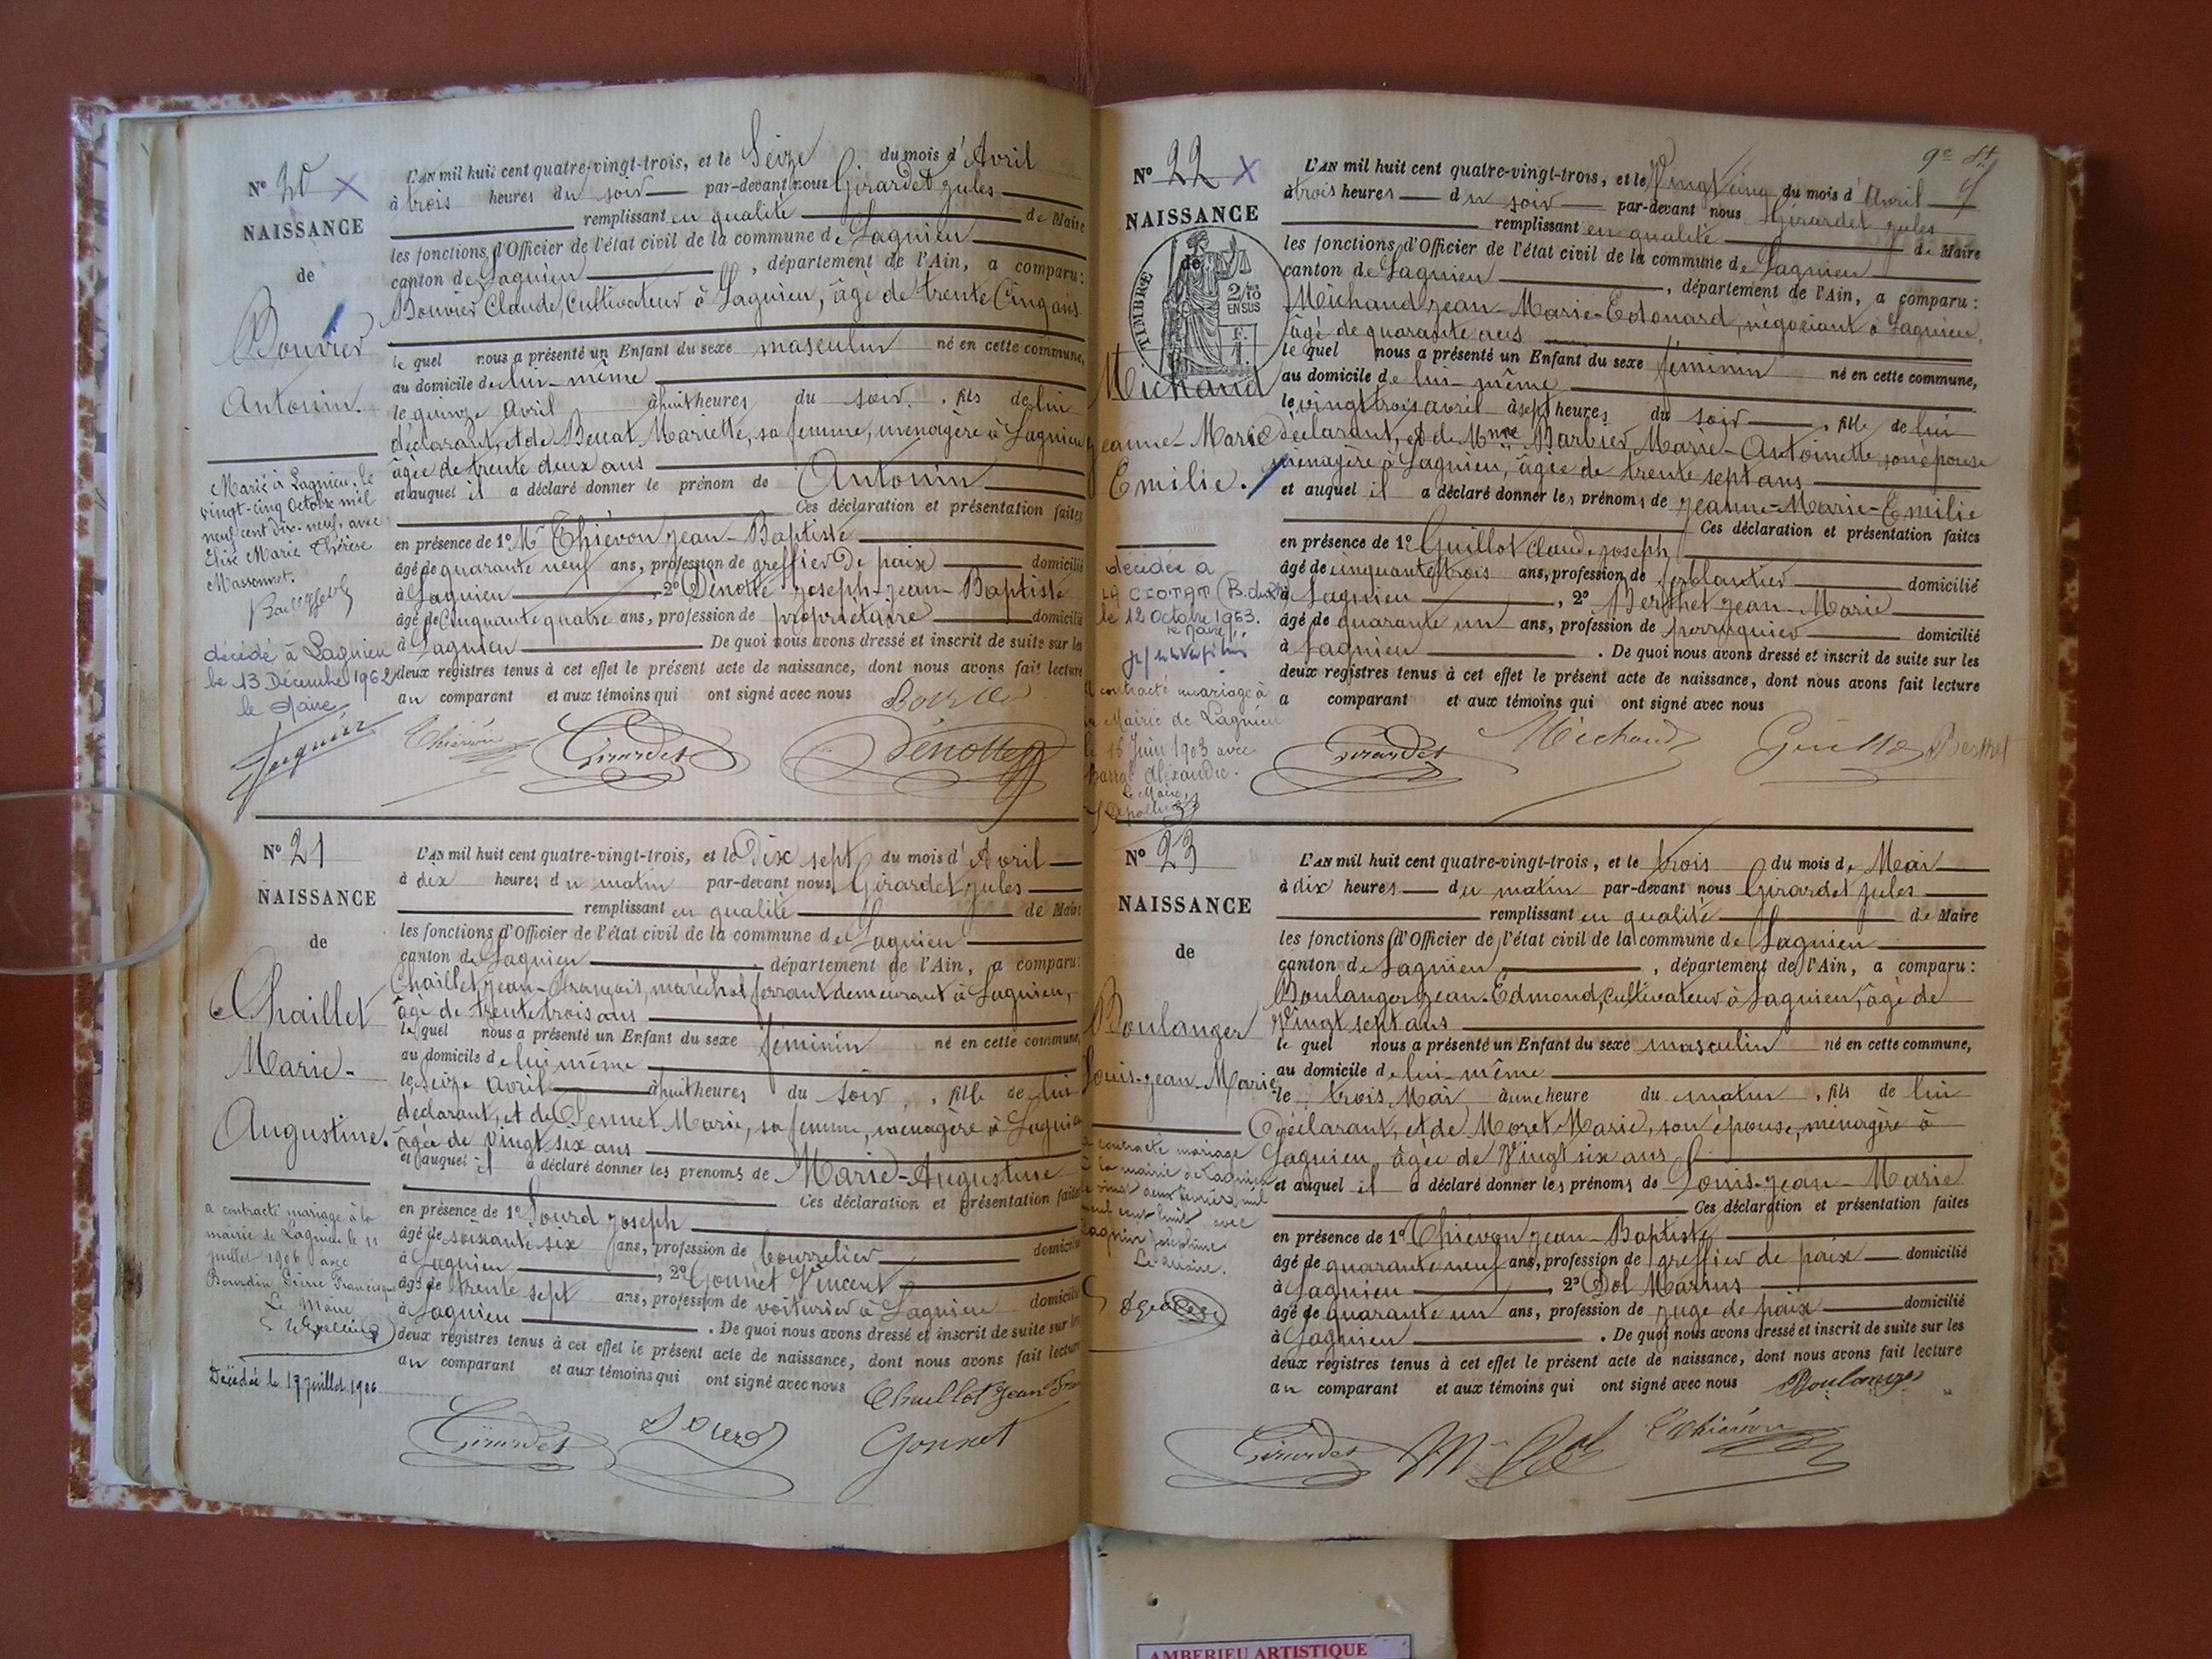 N° 20 X
NAISSANCE
de
Bouvier
Antonin.
Marié à Lagnieu, le
vingt-cinq Octobre mil
neuf cent dix-neuf, avec
Elise Marie Thérèse
Massonnet.
décédé à Lagnieu
le 13 Décembre 1962
le Maire
L'AN mil huit cent quatre-vingt-trois, et le Seize du mois d'Avril
à trois heures du soir par-devant nous Girardet Jules
remplissant en qualité de Maire
les fonctions d'Officier de l'état civil de la commune de Lagnieu
canton de Lagnieu, département de l'Ain, a comparu:
Bouvier Claude, Cultivateur à Lagnieu, âgé de trente Cinq ans
le quel nous a présenté un Enfant du sexe masculin né en cette commune,
au domicile de lui-même
le quinze avril à huit heures du soir, fils de lui
déclarant, et de Benat Mariette, sa femme, ménagère à Lagnieu
âgée de trente deux ans
et auquel il a déclaré donner le prénom de Antonin
Ces déclaration et présentation faites
en présence de 1° Mr Thiévon Jean-Baptiste
âgé de quarante neuf ans, profession de greffier de paix domicilié
à Lagnieu, 2° Dénotte Joseph-Jean-Baptiste
âgé de Cinquante quatre ans, profession de propriétaire domicilié
à Lagnieu De quoi nous avons dressé et inscrit de suite sur les
deux registres tenus à cet effet le présent acte de naissance, dont nous avons fait lecture
au comparant et aux témoins qui ont signé avec nous
Thiévon Girardet Dénotte
N° 21
NAISSANCE
de
Chaillet
Marie-
Augustine.
a contracté mariage à la
mairie de Lagnieu le 11
juillet 1906 avec
Bourdin Pierre Francisque
Le Maire
Décédée le 17 juillet 1906
L'AN mil huit cent quatre-vingt-trois, et le Dix sept du mois d'Avril
à dix heures du matin par-devant nous Girardet Jules
remplissant en qualité de Maire
les fonctions d'Officier de l'état civil de la commune de Lagnieu
canton de Lagnieu, département de l'Ain, a comparu:
Chaillet Jean-François, maréchal ferrant demeurant à Lagnieu,
âgé de trente trois ans
le quel nous a présenté un Enfant du sexe féminin né en cette commune,
au domicile de lui même
le Seize avril à huit heures du soir, fille de lui
déclarant, et de Pennet Marie, sa femme, ménagère à Lagnieu
âgée de vingt six ans
et auquel il a déclaré donner les prénoms de Marie-Augustine
Ces déclaration et présentation faites
en présence de 1° Lourd Joseph
âgé de soixante six ans, profession de bourrelier domicilié
à Lagnieu, 2° Gonnet Vincent
âgé de trente sept ans, profession de voiturier à Lagnieu domicilié
à Lagnieu. De quoi nous avons dressé et inscrit de suite sur les
deux registres tenus à cet effet le présent acte de naissance, dont nous avons fait lecture
au comparant et aux témoins qui ont signé avec nous Chaillet Jean Fran
Girardet Lourd Gonnet
N° 22 X
NAISSANCE
de
TIMBRE
2/10 EN SUS
Michaud
Jeanne-Marie
Emilie.
décédée à
La Ciotat (B. du Rh)
le 12 Octobre 1963.
le Maire,
contracté mariage à
la Mairie de Lagnieu
le 16 Juin 1903 avec
Alexandre.
Le Maire,
9e
L'AN mil huit cent quatre-vingt-trois, et le Vingt cinq du mois d'Avril
à trois heures du soir par-devant nous Girardet Jules
remplissant en qualité de Maire
les fonctions d'Officier de l'état civil de la commune de Lagnieu
canton de Lagnieu, département de l'Ain, a comparu:
Michaud Jean-Marie-Edouard, négociant à Lagnieu,
âgé de quarante ans
le quel nous a présenté un Enfant du sexe féminin né en cette commune,
au domicile de lui-même
le vingt trois avril à sept heures du soir, fille de lui
déclarant, et de Mme Barbier Marie-Antoinette, son épouse
ménagère à Lagnieu, âgée de trente sept ans
et auquel il a déclaré donner les prénoms de Jeanne-Marie-Emilie
Ces déclaration et présentation faites
en présence de 1° Guillot Claude Joseph
âgé de cinquante trois ans, profession de ferblantier domicilié
à Lagnieu, 2° Berthet Jean-Marie
âgé de quarante un ans, profession de perruquier domicilié
à Lagnieu. De quoi nous avons dressé et inscrit de suite sur les
deux registres tenus à cet effet le présent acte de naissance, dont nous avons fait lecture
a comparant et aux témoins qui ont signé avec nous
Girardet Michaud Guillot Berthet
N° 23
NAISSANCE
de
Boulanger
Louis-Jean-Marie
a contracté mariage
à la mairie de Lagnieu
le vingt deux février mil
neuf cent huit avec
Joséphine
Le Maire.
L'AN mil huit cent quatre-vingt-trois, et le trois du mois de Mai
à dix heures du matin par-devant nous Girardet Jules
remplissant en qualité de Maire
les fonctions d'Officier de l'état civil de la commune de Lagnieu
canton de Lagnieu, département de l'Ain, a comparu:
Boulanger Jean-Edmond, Cultivateur à Lagnieu, âgé de
Vingt sept ans
le quel nous a présenté un Enfant du sexe masculin né en cette commune,
au domicile de lui-même
le trois Mai à une heure du matin, fils de lui
Déclarant, et de Moret Marie, son épouse, ménagère à
Lagnieu, âgée de Vingt six ans
et auquel il a déclaré donner les prénoms de Louis-Jean-Marie
Ces déclaration et présentation faites
en présence de 1° Thiévon Jean-Baptiste
âgé de quarante neuf ans, profession de greffier de paix domicilié
à Lagnieu, 2° Dol Marius
âgé de quarante un ans, profession de juge de paix domicilié
à Lagnieu. De quoi nous avons dressé et inscrit de suite sur les
deux registres tenus à cet effet le présent acte de naissance, dont nous avons fait lecture
au comparant et aux témoins qui ont signé avec nous Boulanger
Girardet M Dol Thiévon
AMBERIEU ARTISTIQUE